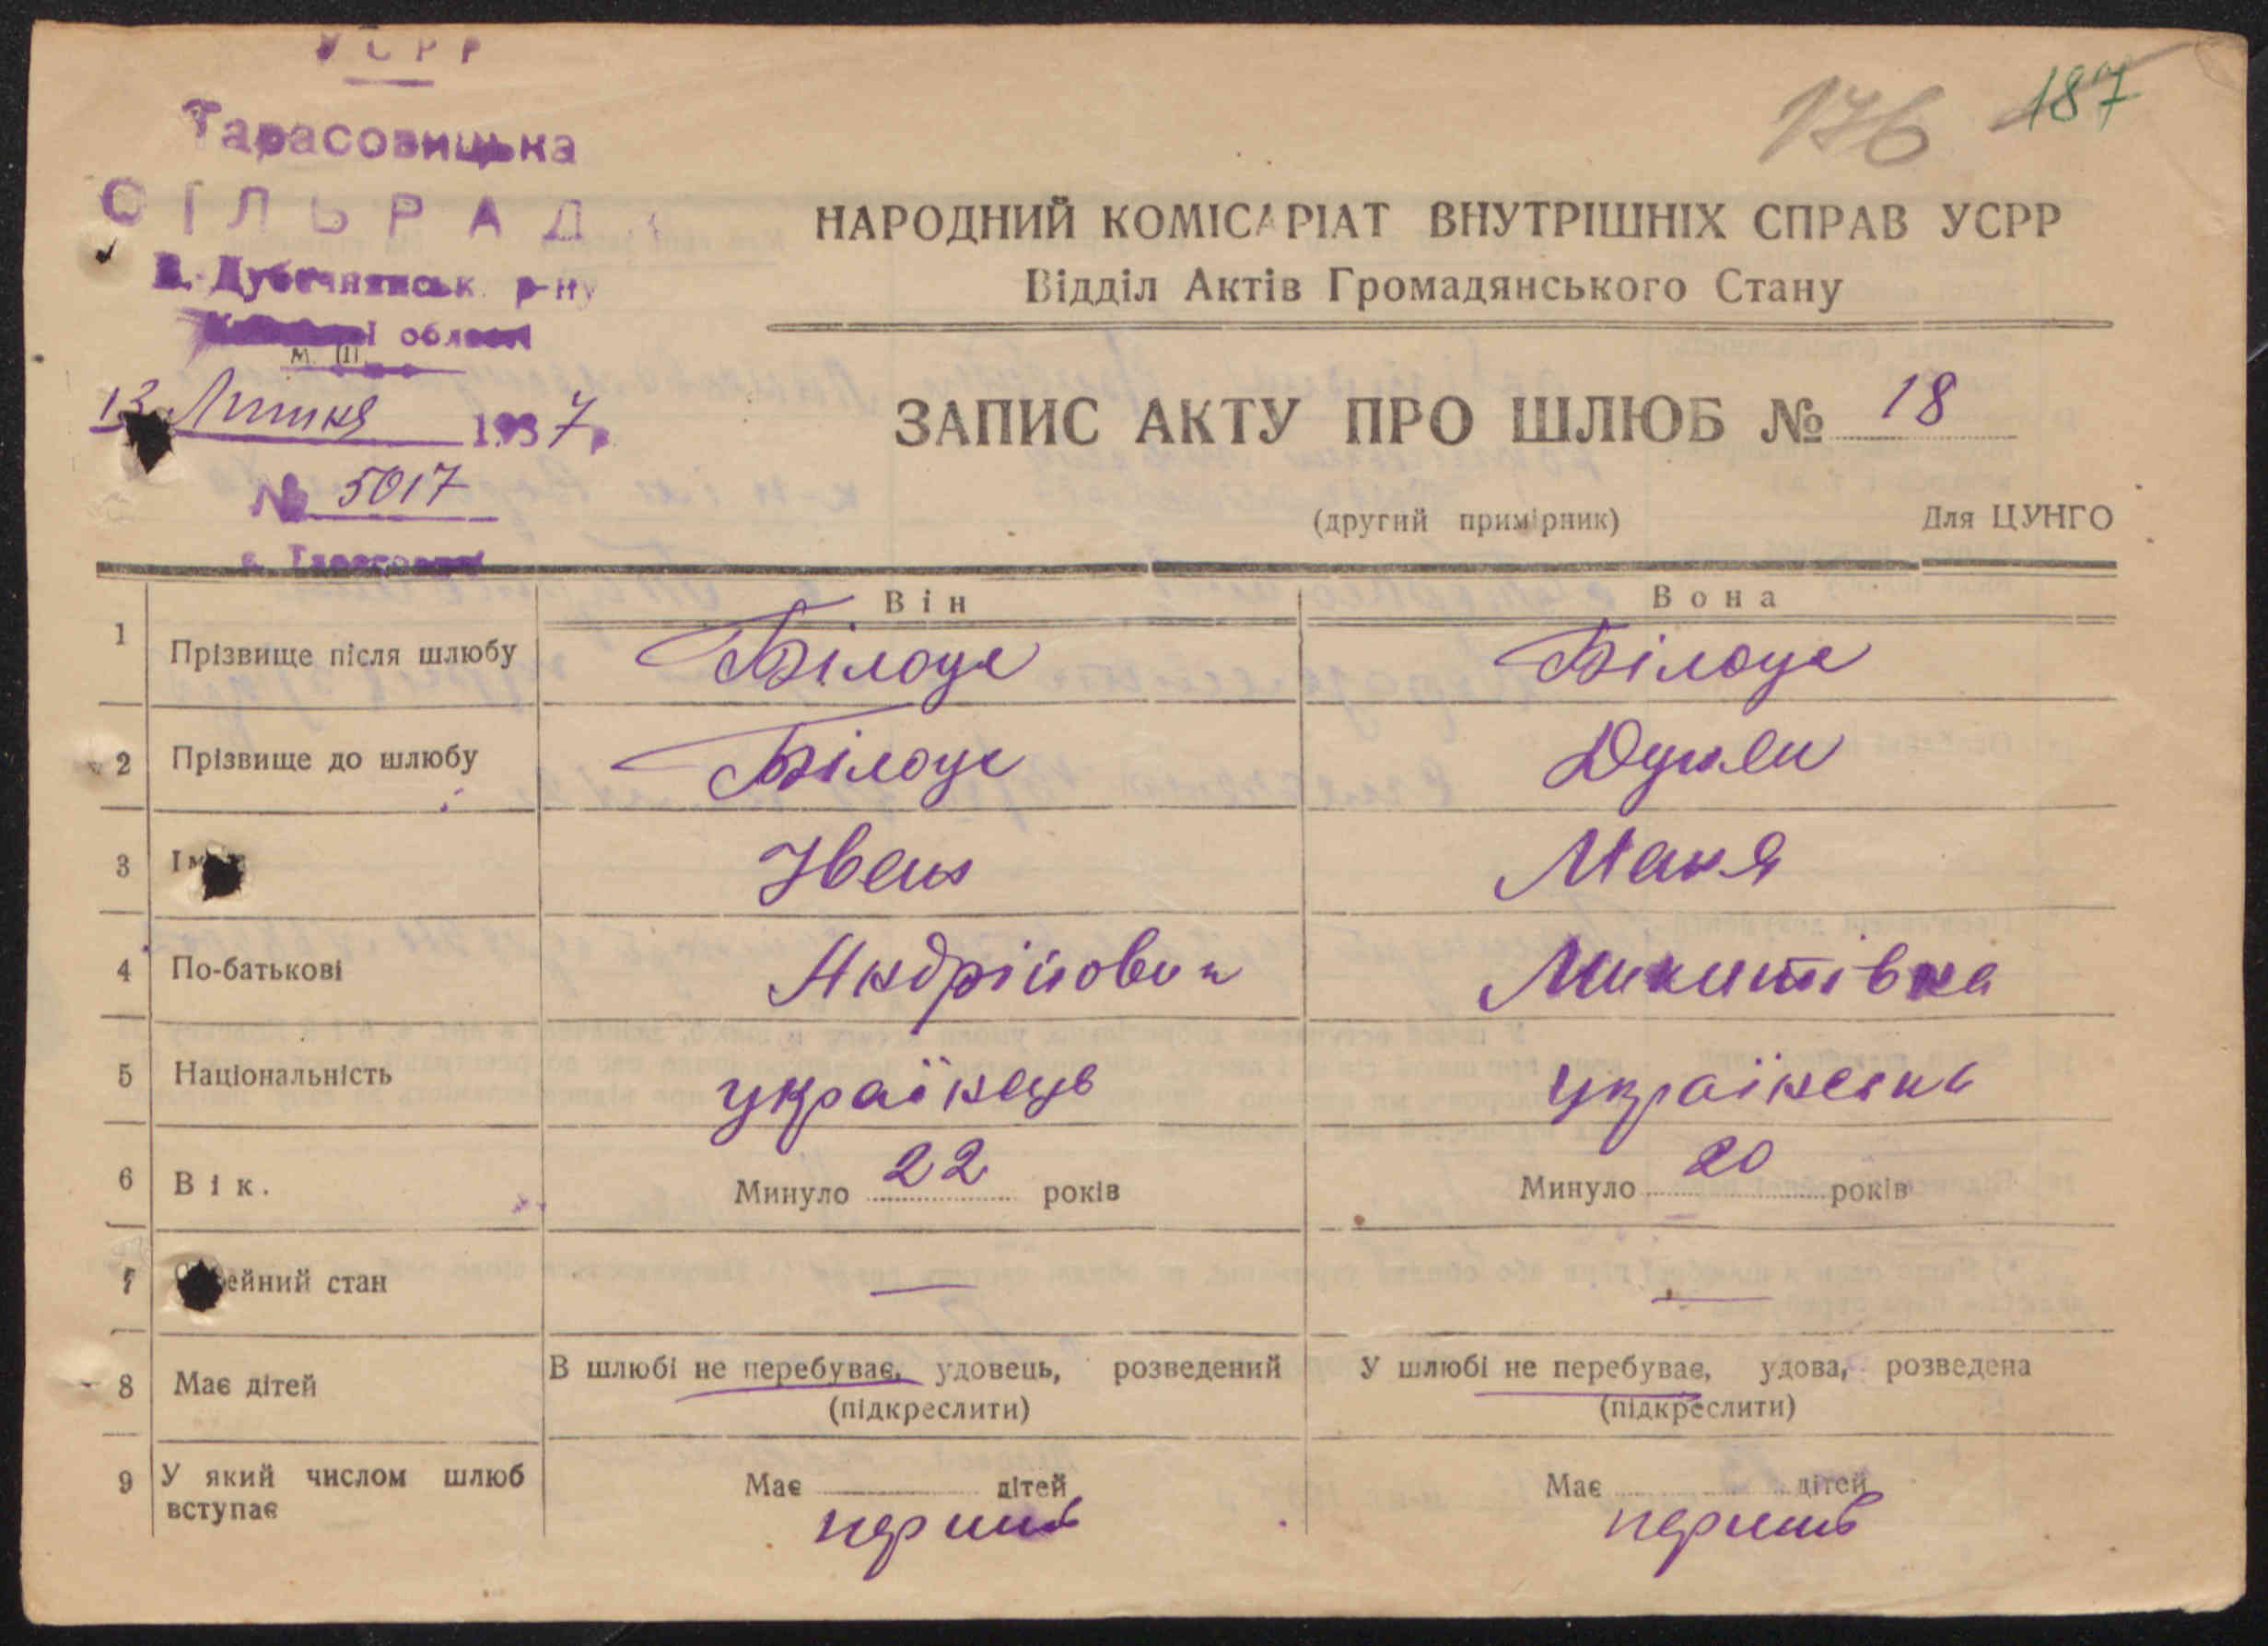 УСРР
Тарасовицька
СІЛЬРАДА
В. Дубечнянськ. р-ну
області
М. П.
13 Липня 1937 р.
№ 5017
176 187
НАРОДНИЙ КОМІСАРІАТ ВНУТРІШНІХ СПРАВ УСРР
Відділ Актів Громадянського Стану
ЗАПИС АКТУ ПРО ШЛЮБ № 18
(другий примірник) Для ЦУНГО
Він Вона
1 Прізвище після шлюбу Білоус Білоус
2 Прізвище до шлюбу Білоус
3 Ім Іван
4 По-батькові Андрійович Микитівна
5 Національність українець українка
6 Вік. Минуло 22 років Минуло 20 років
7 ейний стан — —
8 Має дітей В шлюбі не перебуває, удовець, розведений У шлюбі не перебуває, удова, розведена
(підкреслити) (підкреслити)
9 У який числом шлюб вступає Має дітей Має дітей
перший перший